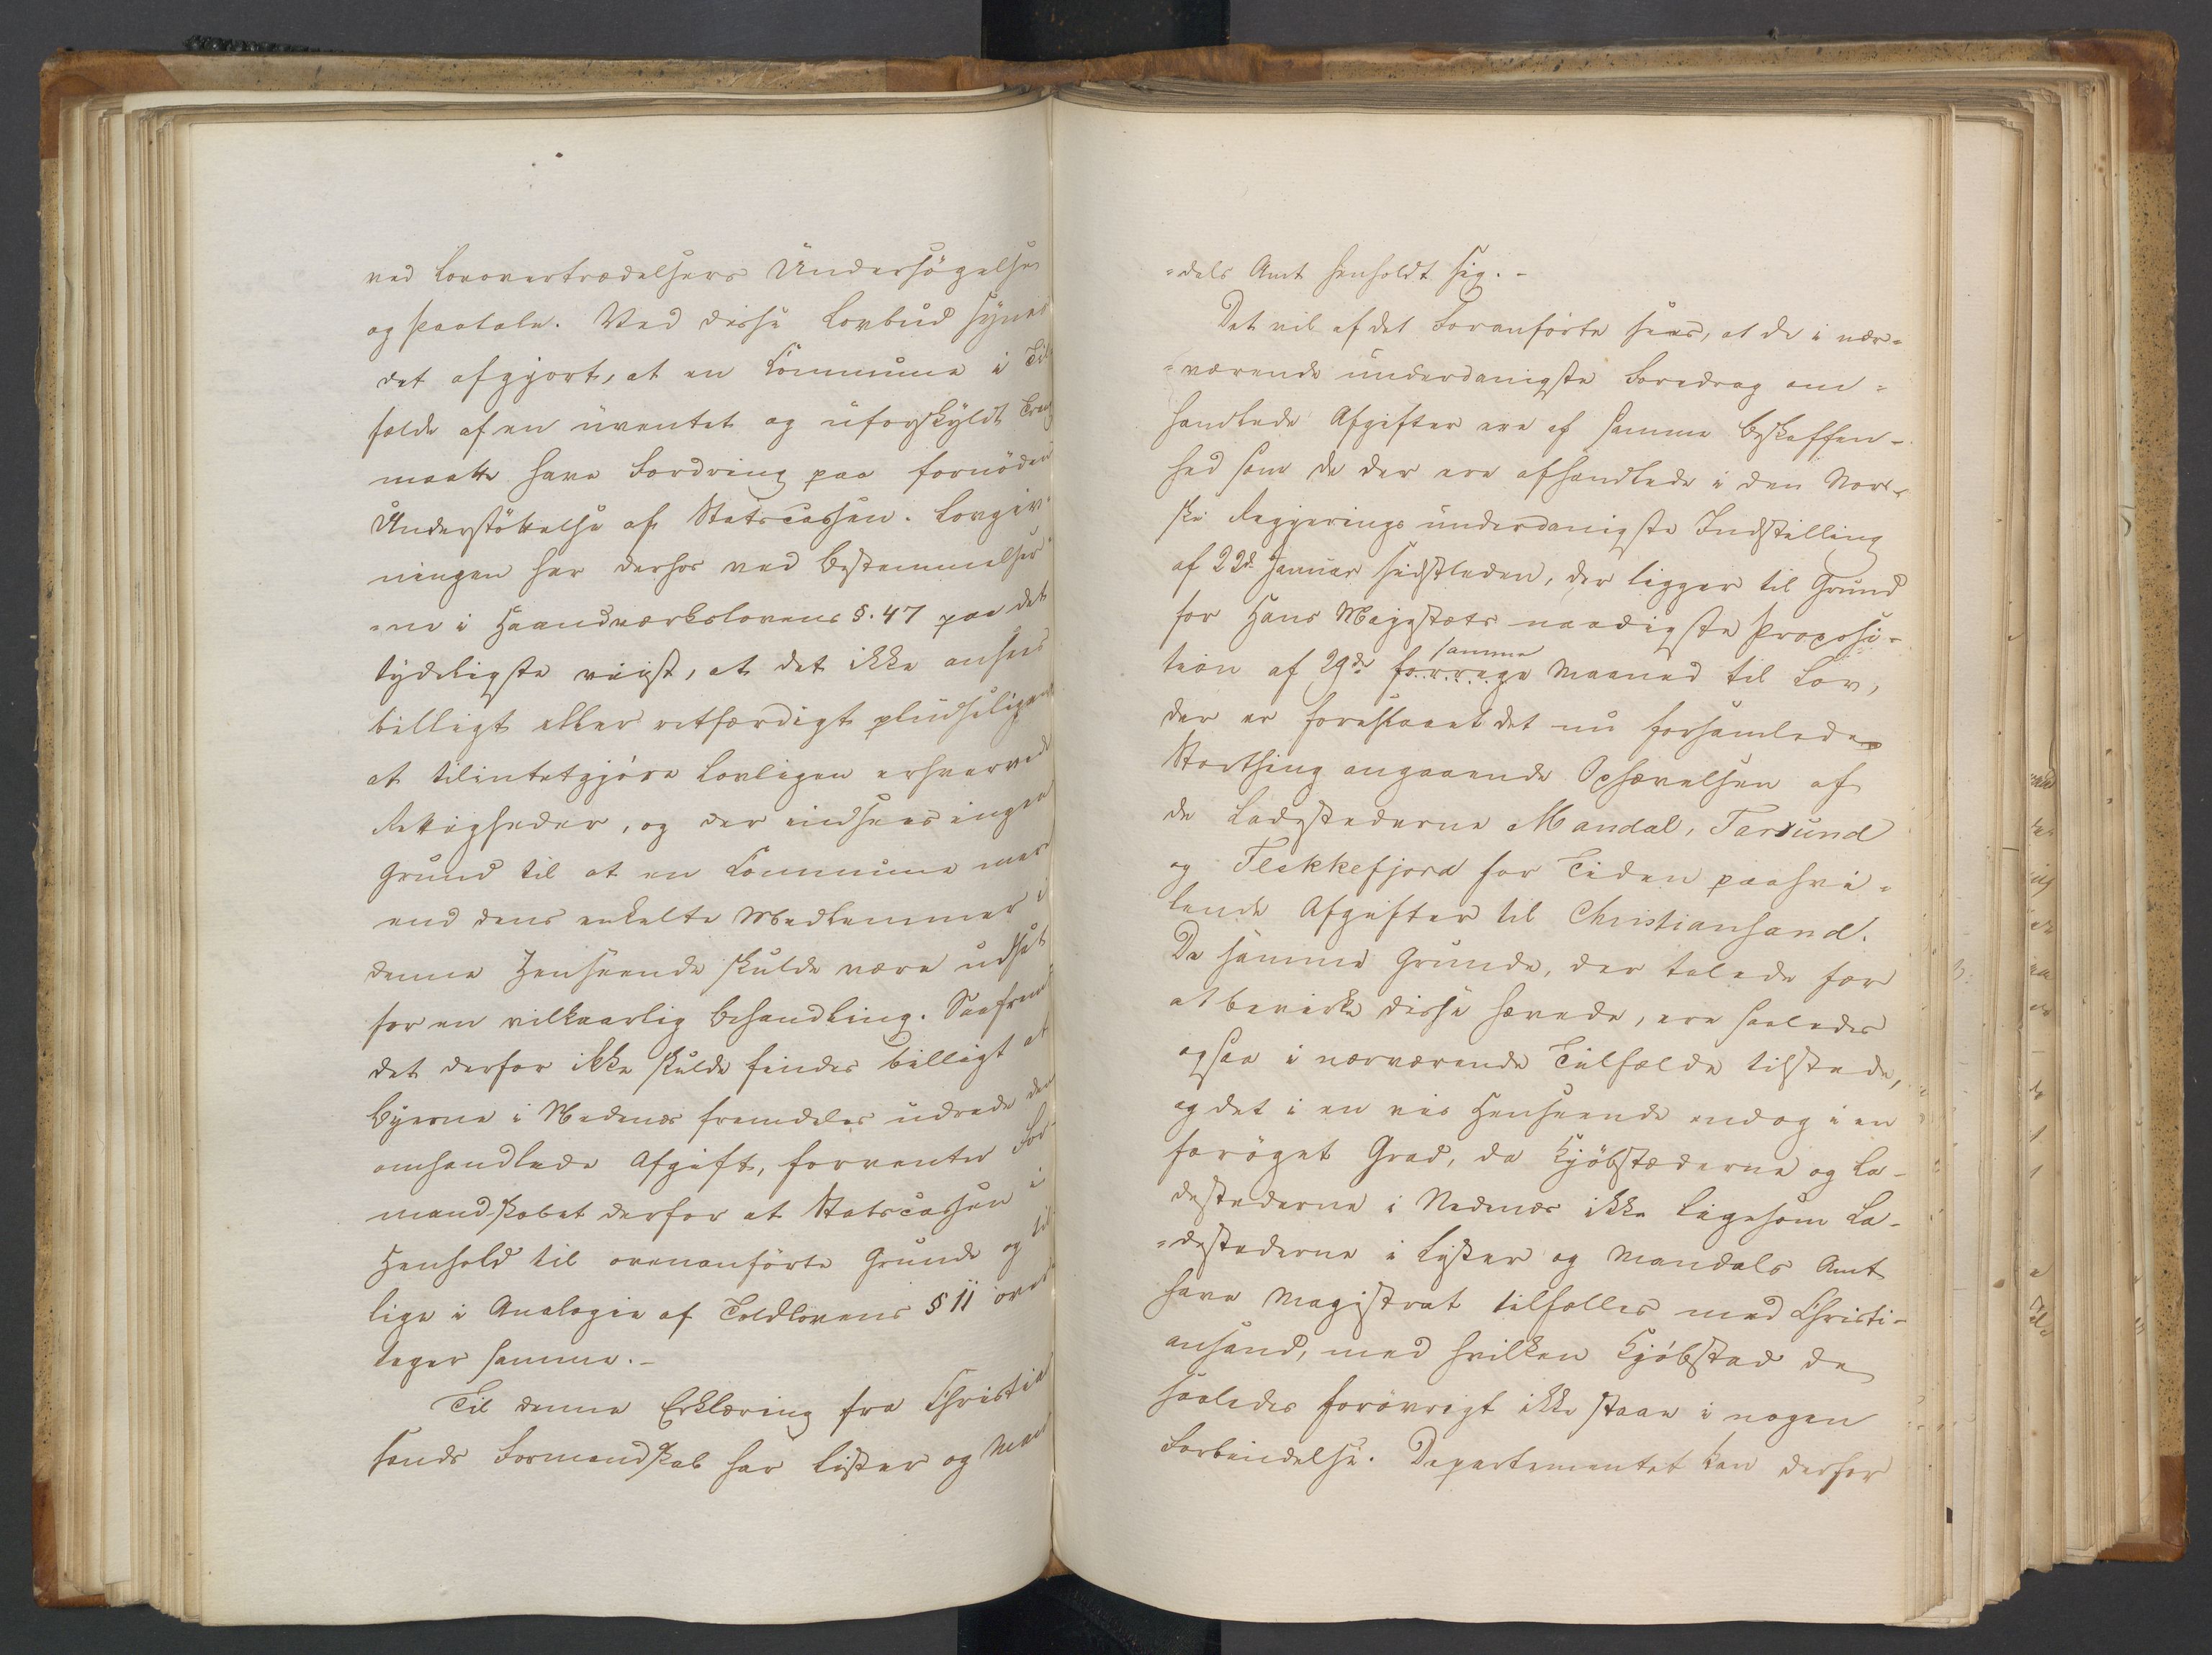 ved Lovovertrædelsers Undersøgelse
og Paatale. Ved disse Lovbud synes
det afgjort, at en Commune i Til
fælde af en uventet og uforskyldt Trang
maatte have Fordring paa fornöden
Understöttelse af Statscassen. Lovgiv¬
ningen har derhos ved Bestemmelser¬
ne i Haandværkslovens §. 47 paa det
tydeligste viist, at det ikke ansees
billigt eller retfærdigt pludseligen
at tilintetgjöre lovligen erhvervede
Rettigheder, og der indsees ingen
Grund til at en Commune mere
end dens enkelte Medlemmer i
denne Henseende skulde være udsat
for en vilkaarlig Behandling. Saafremt
det derfor ikke skulde findes billigt at
Byerne i Nedenæs fremdeles udrede den
omhandlede Afgift, forventer For¬
mandskabet derfor at Statscassen i
Henhold til ovenanförte Grunde og til
lige i Analogie af Toldlovens § 11 over
tager samme.-
Til denne Erklæring fra Christian
sands Formandskab har Lister og Man
=dals Amt henholdt sig. -
Det vil af det Foranförte sees, at de i nær=
=værende underdanigste Foredrag om=
handlede Afgifter ere af samme Beskaffen-
hed som de der ere afhandlede i den Nor-
ske Regjerings underdanigste Indstilling
af 22de Januar sidstleden, der ligger til Grund
for Hans Majestæts naadigste Proposi-
samme
tion af 29de forrige Maaned til Lov,
der er forelagt det nu forsamlede
Storthing angaaende Ophævelsen af
de Ladestederne Mandal, Farsund
og Flekkefjord for Tiden paahvi=
lende Afgifter til Christiansand.
De samme Grunde, der talede for
at bevirke disse hævede, ere saaledes
ogsaa i nærværende Tilfælde tilstede,
og det i en vis Henseende endog i en
forøget Grad, da Kjöbstæderne og La-
destederne i Nedenæs ikke ligesom La-
=destederne i Lister og Mandals Amt
have Magistrat tilfælles med Christi-
ansand, med hvilken Kjöbstad de
saaledes forövrigt ikke staae i nogen
Forbindelse. Departementet kan derfor